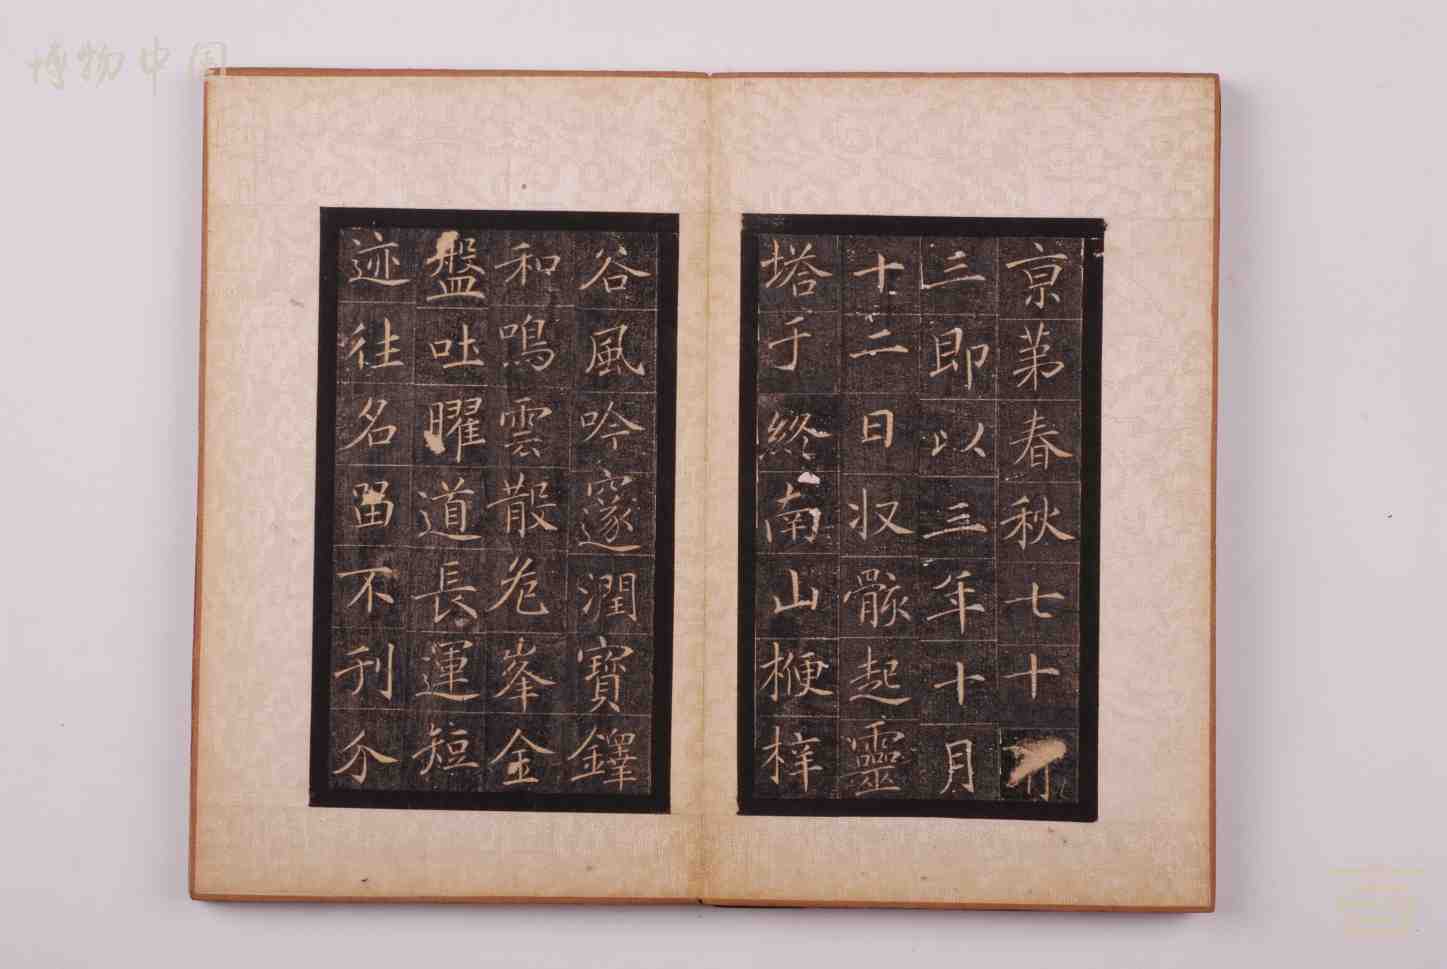 博物中国
亰第春秋七十有
三即以三年十月
十二日収骸起靈
塔于終南山楩梓
谷風吟邃澗寶鐸
和鳴雲散危峯金
盤吐曜道長運短
迹往名留不刊介